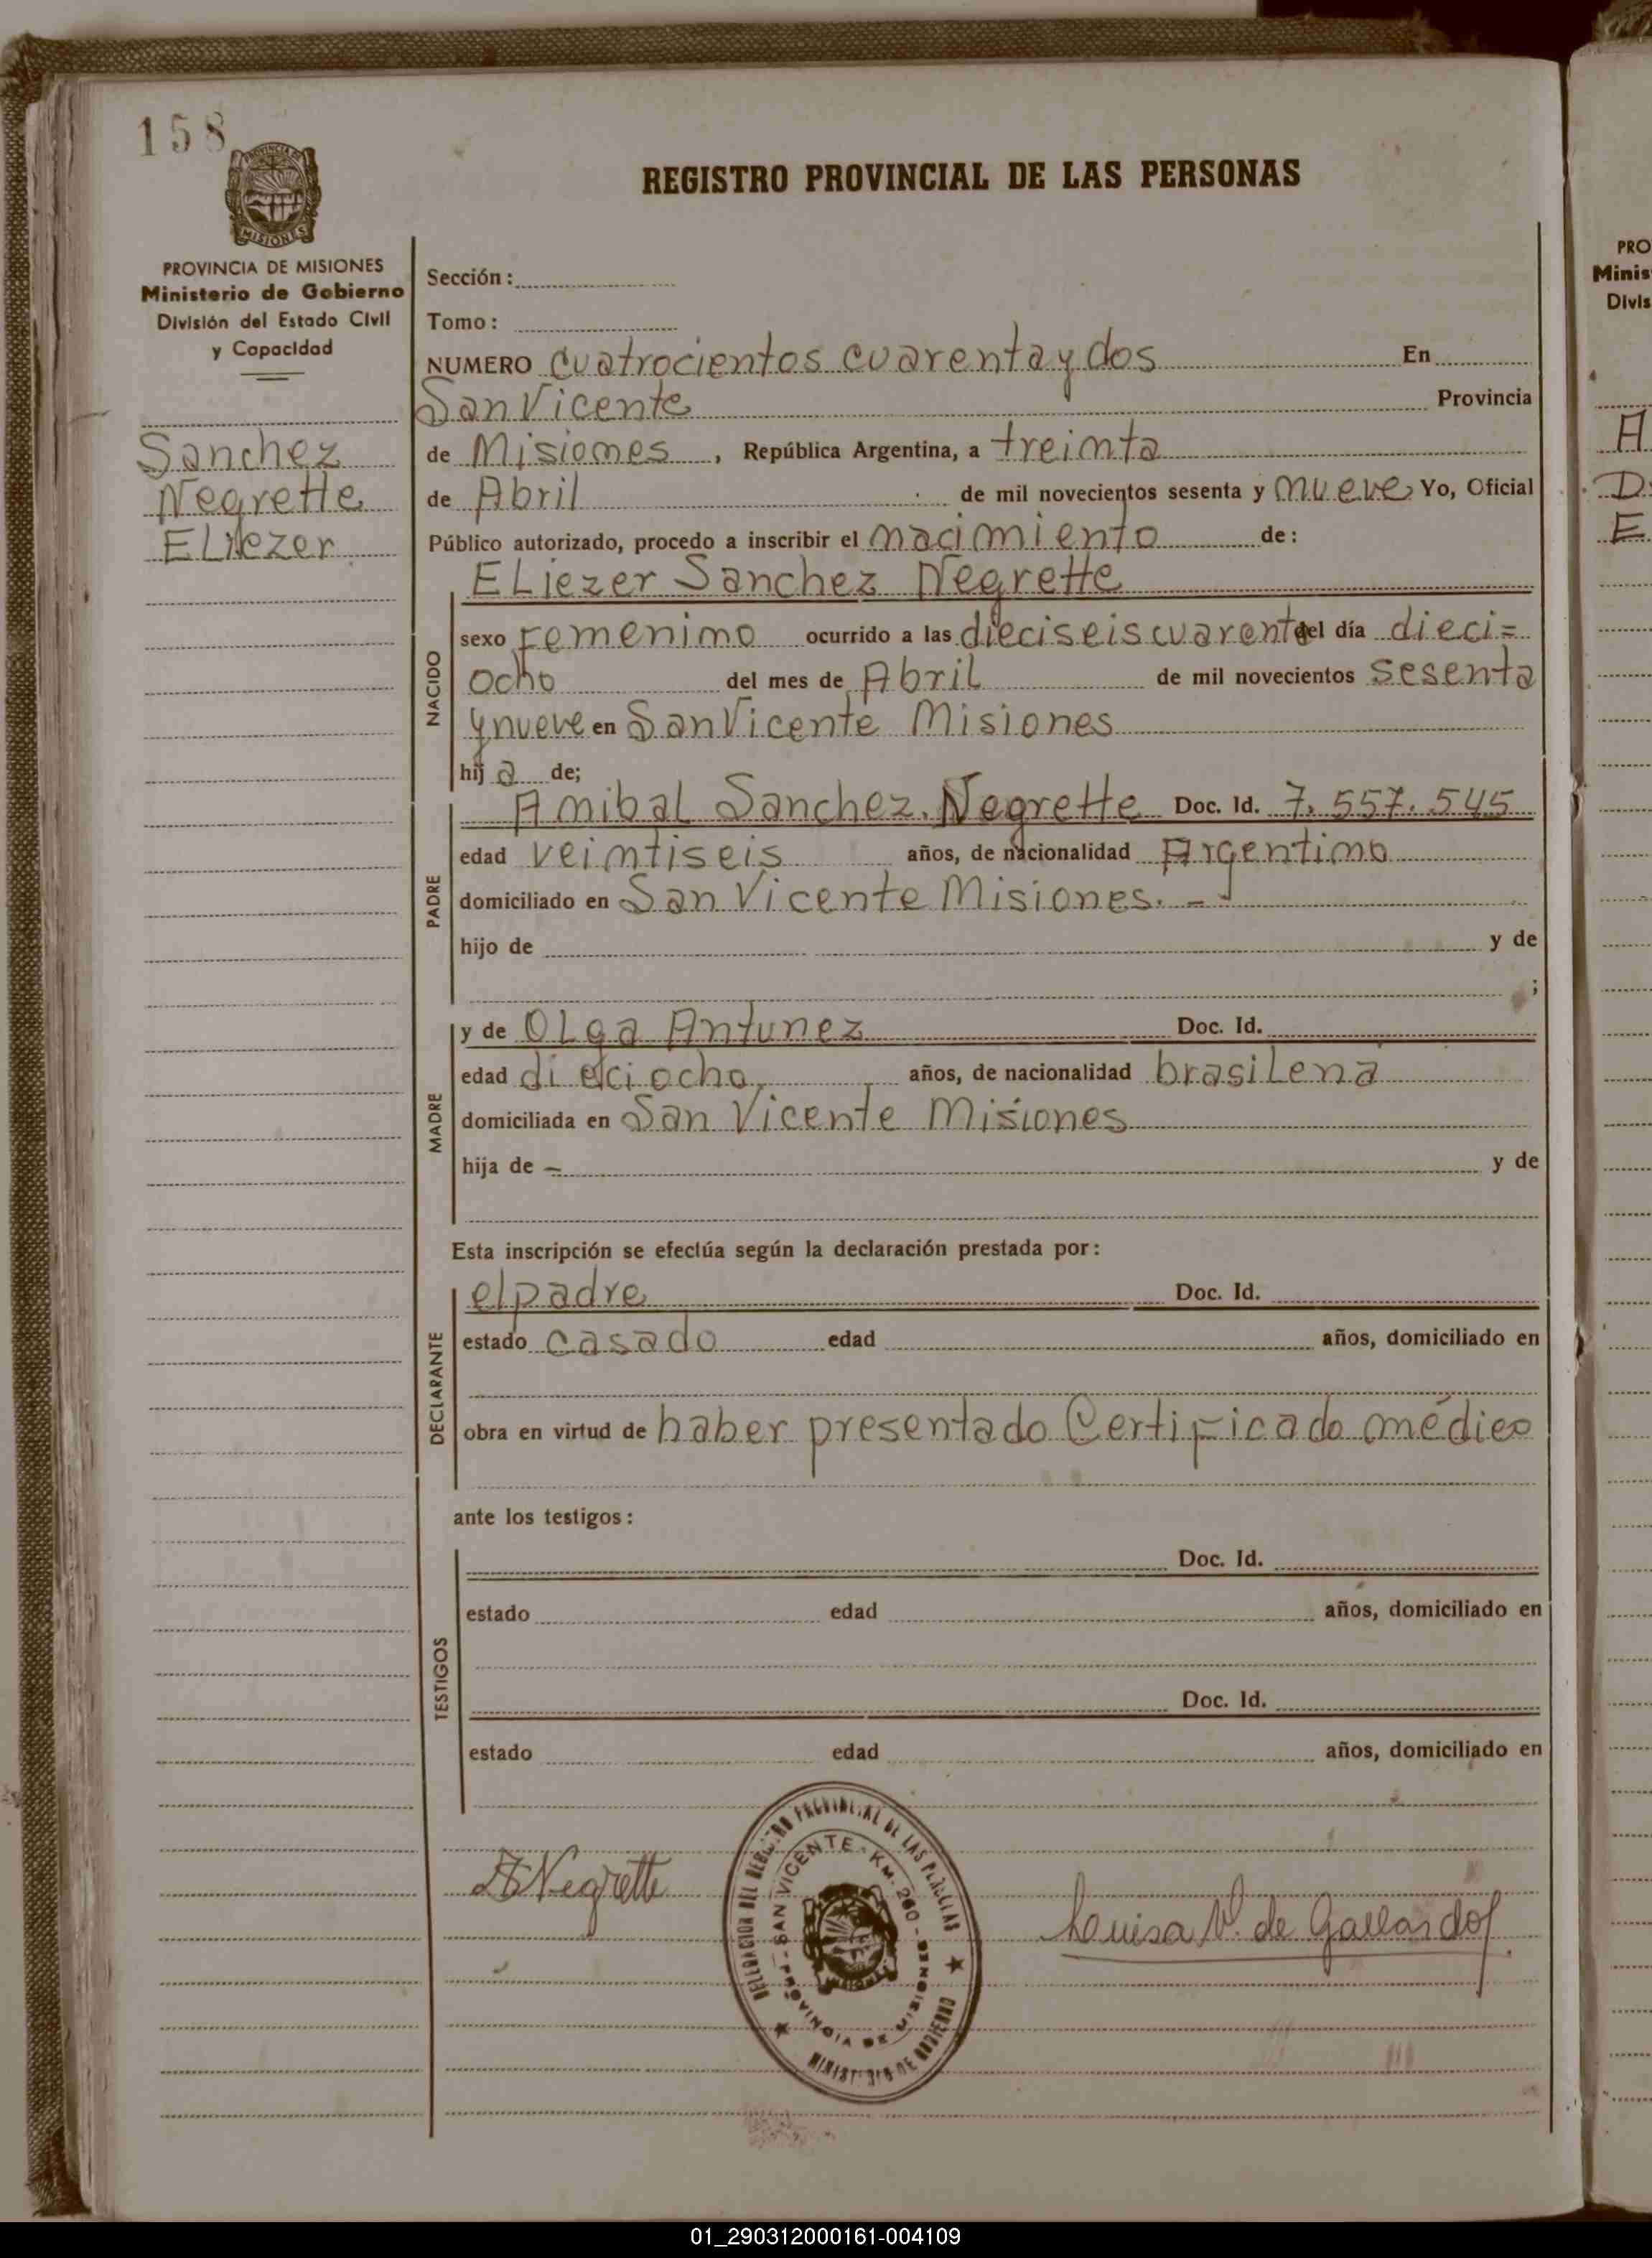 158
MISIONES
REGISTRO PROVINCIAL DE LAS PERSONAS
PROVINCIA DE MISIONES
Ministerio de Gobierno
División del Estado Civil
y Capacidad
Sanchez
Negrette
ELiezer
Sección :
Tomo :
NUMERO cuatrocientos cuarenta y dos En
San Vicente Provincia
de Misiones , República Argentina, a treinta
de Abril de mil novecientos sesenta y nueve Yo, Oficial
Público autorizado, procedo a inscribir el nacimiento de :
ELiezer Sanchez Negrette
NACIDO
sexo Femenino ocurrido a las dieciseis cuarenta del día dieci=
ocho del mes de Abril de mil novecientos sesenta
y nueve en San Vicente Misiones
hij a de;
PADRE
Anibal Sanchez. Negrette Doc. Id. 7.557.545
edad veintiseis años, de nacionalidad Argentino
domiciliado en San Vicente Misiones. -
hijo de y de
;
MADRE
y de OLga Antunez Doc. Id.
edad dieciocho, años, de nacionalidad brasiLena
domiciliada en San Vicente Misiones
hija de - y de
Esta inscripción se efectúa según la declaración prestada por :
DECLARANTE
el padre Doc. Id.
estado casado edad años, domiciliado en
obra en virtud de haber presentado Certificado médico
ante los testigos :
TESTIGOS
Doc. Id.
estado edad años, domiciliado en
Doc. Id.
estado edad años, domiciliado en
Negrette
DELEGACION DEL REGISTRO PROVINCIAL DE LAS PERSONAS
SAN VICENTE - KM. 260 -
PROVINCIA DE MISIONES
MINISTERIO DE GOBIERNO
Louisa V. de Gallardo
PRO
Minis
Divis
A
D
E
01_290312000161-004109